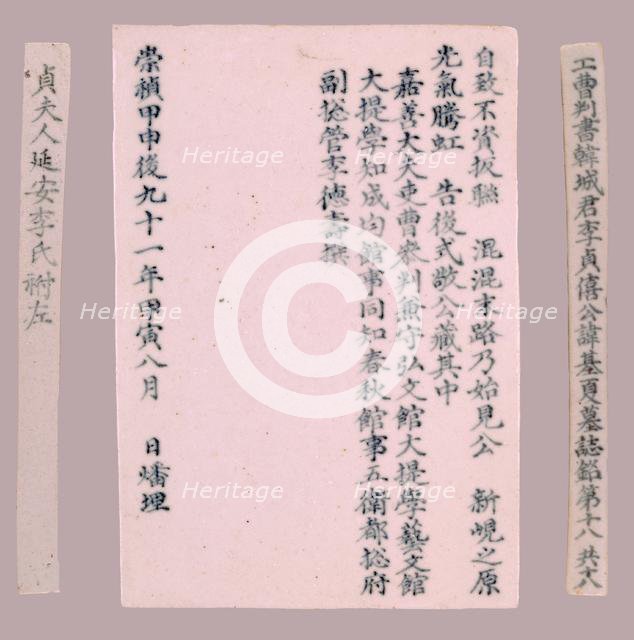 工曹判書韓城君李貞僖公諱基夏墓誌銘第十八共十八
自致不資扳聯　混混末路乃始見公　新峴之原
光氣騰虹　告後式敬公藏其中
嘉善大夫吏曹參判兼守弘文館大提學藝文館
大提學知成均館事同知春秋館事五衛都摠府
副摠管李德壽撰
崇禎甲申後九十一年甲寅八月　日燔埋
貞夫人延安李氏祔左
Heritage
Heritage
Heritage
Heritage
Heritage
Heritage
Heritage
Heritage
Heritage